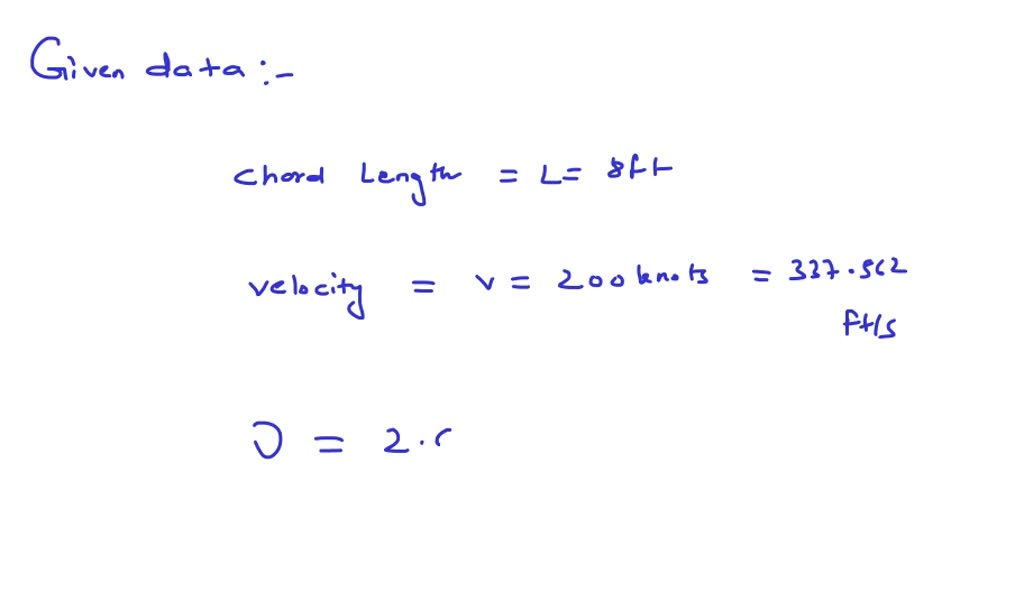 Given data :-
chord Length = L = 8ft
velocity = v = 200 knots = 337.562
ft/s
υ = 2.